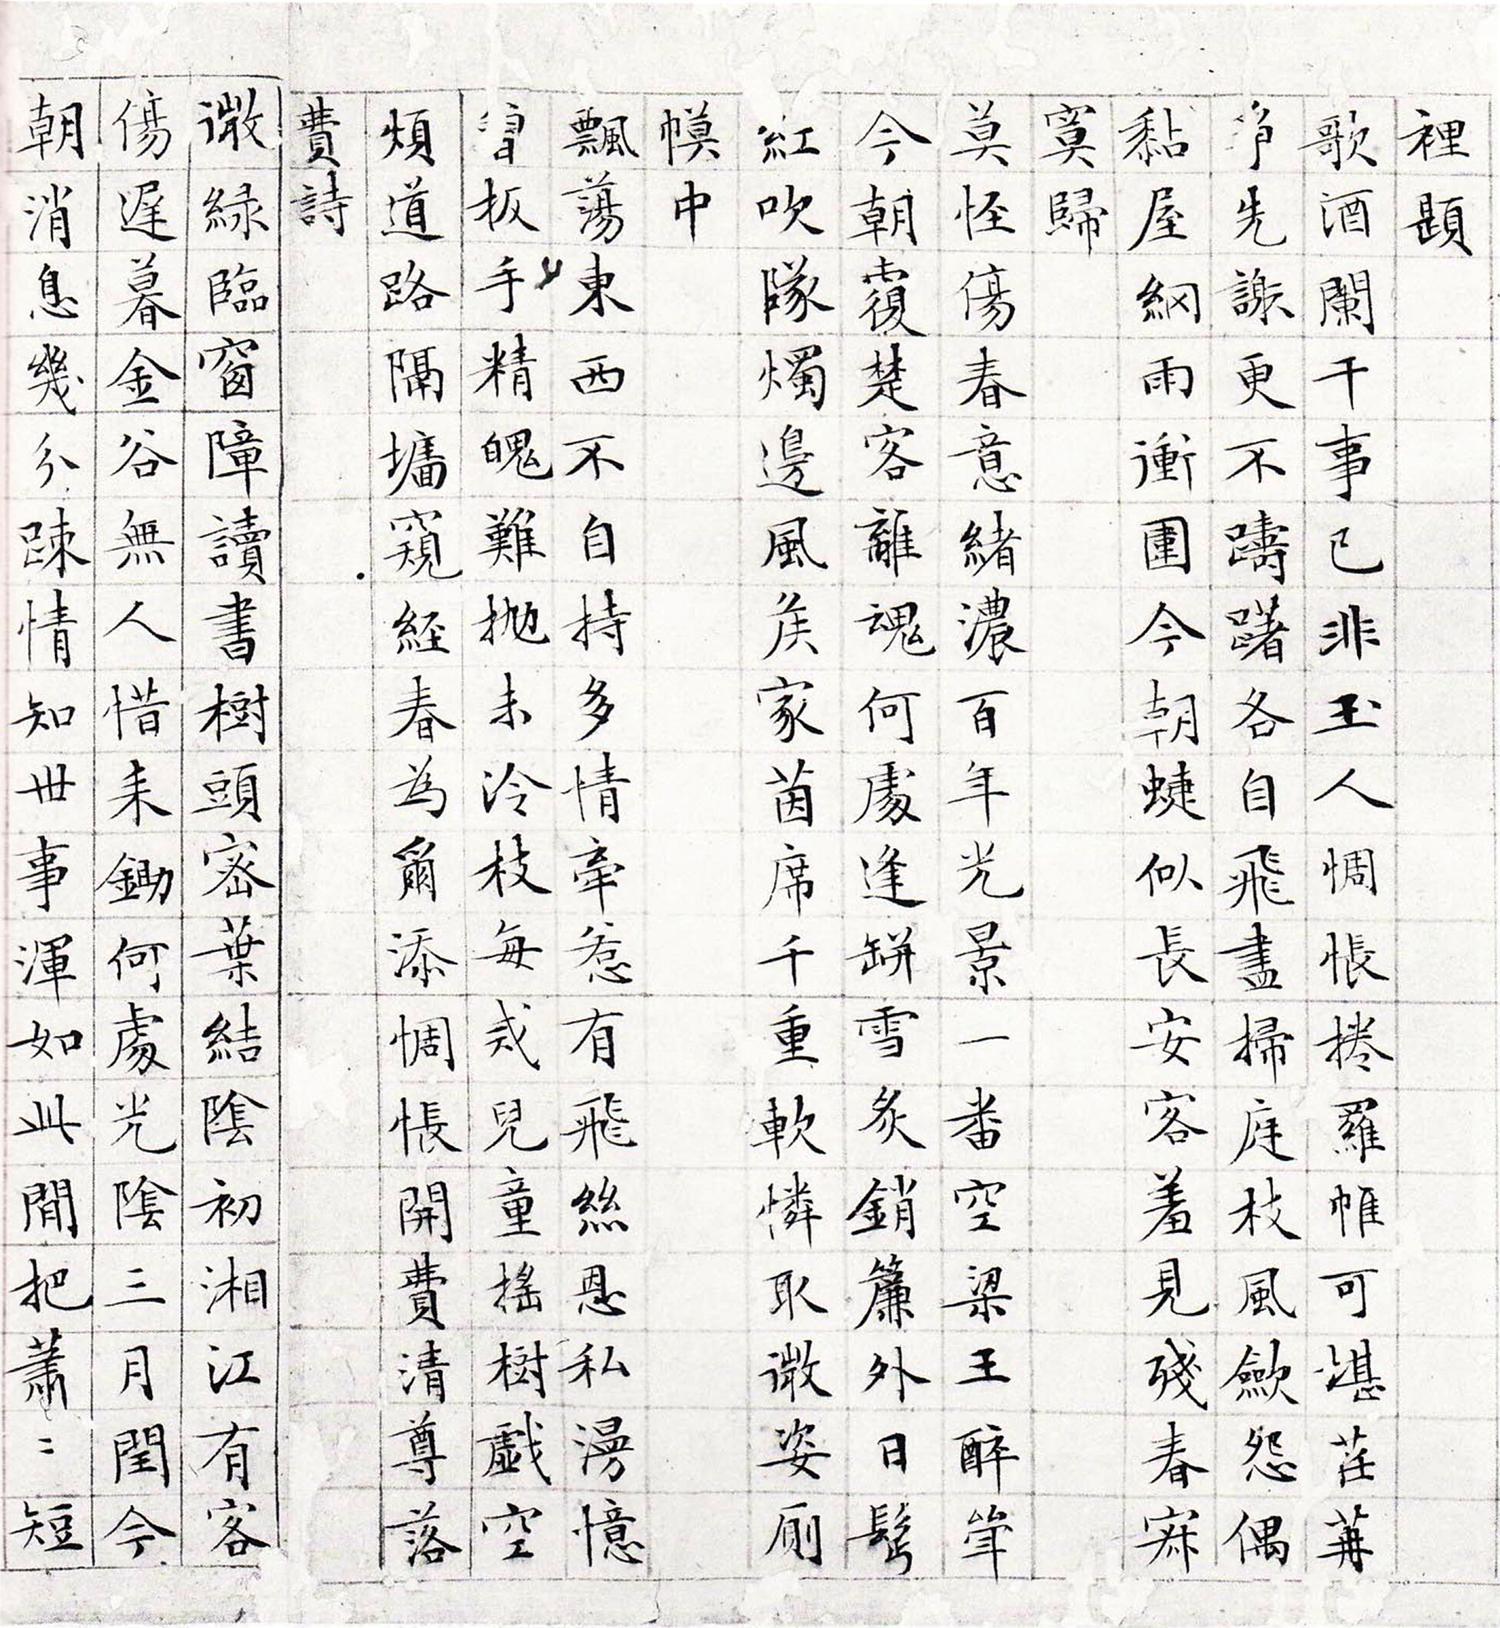 裡題
歌酒闌干事已非玉人惆悵捲羅帷可堪茌苒
爭先謝更不躊躇各自飛盡掃庭枝風歛怨偶
黏屋網雨衝圍今朝蜨似長安客羞見殘春寂
寞歸
莫怪傷春意緒濃百年光景一番空梁王醉聳
今朝覆楚客離魂何處逢缾雪炙銷簾外日髩
紅吹隊燭邊風矦家茵席千重軟憐取微姿厠
幙中
飄蕩東西不自持多情牽惹有飛絲恩私漫憶
曾扳手精魄難拋未冷枝每戒兒童搖樹戲空
煩道路隔墉窺經春為爾添惆悵開費清尊落
費詩
微緑臨窗障讀書樹頭密葉結陰初湘江有客
傷遲暮金谷無人惜耒鋤何處光陰三月閏今
朝消息幾分踈情知世事渾如此閒把蕭〻短